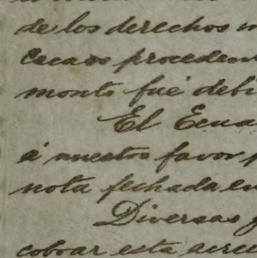 de los derechos
Cacaos proceden
monto fué deb
El Ecua
á nuestro favor p
nota fechada en
Diversas g
cobrar esta acree